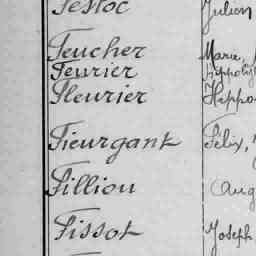 Festoc Julien
Feucher Marie,
Feurier Hippolyt
Fleurier Hippo
Fieurgant Félix,
Filliou Aug
Fissot Joseph